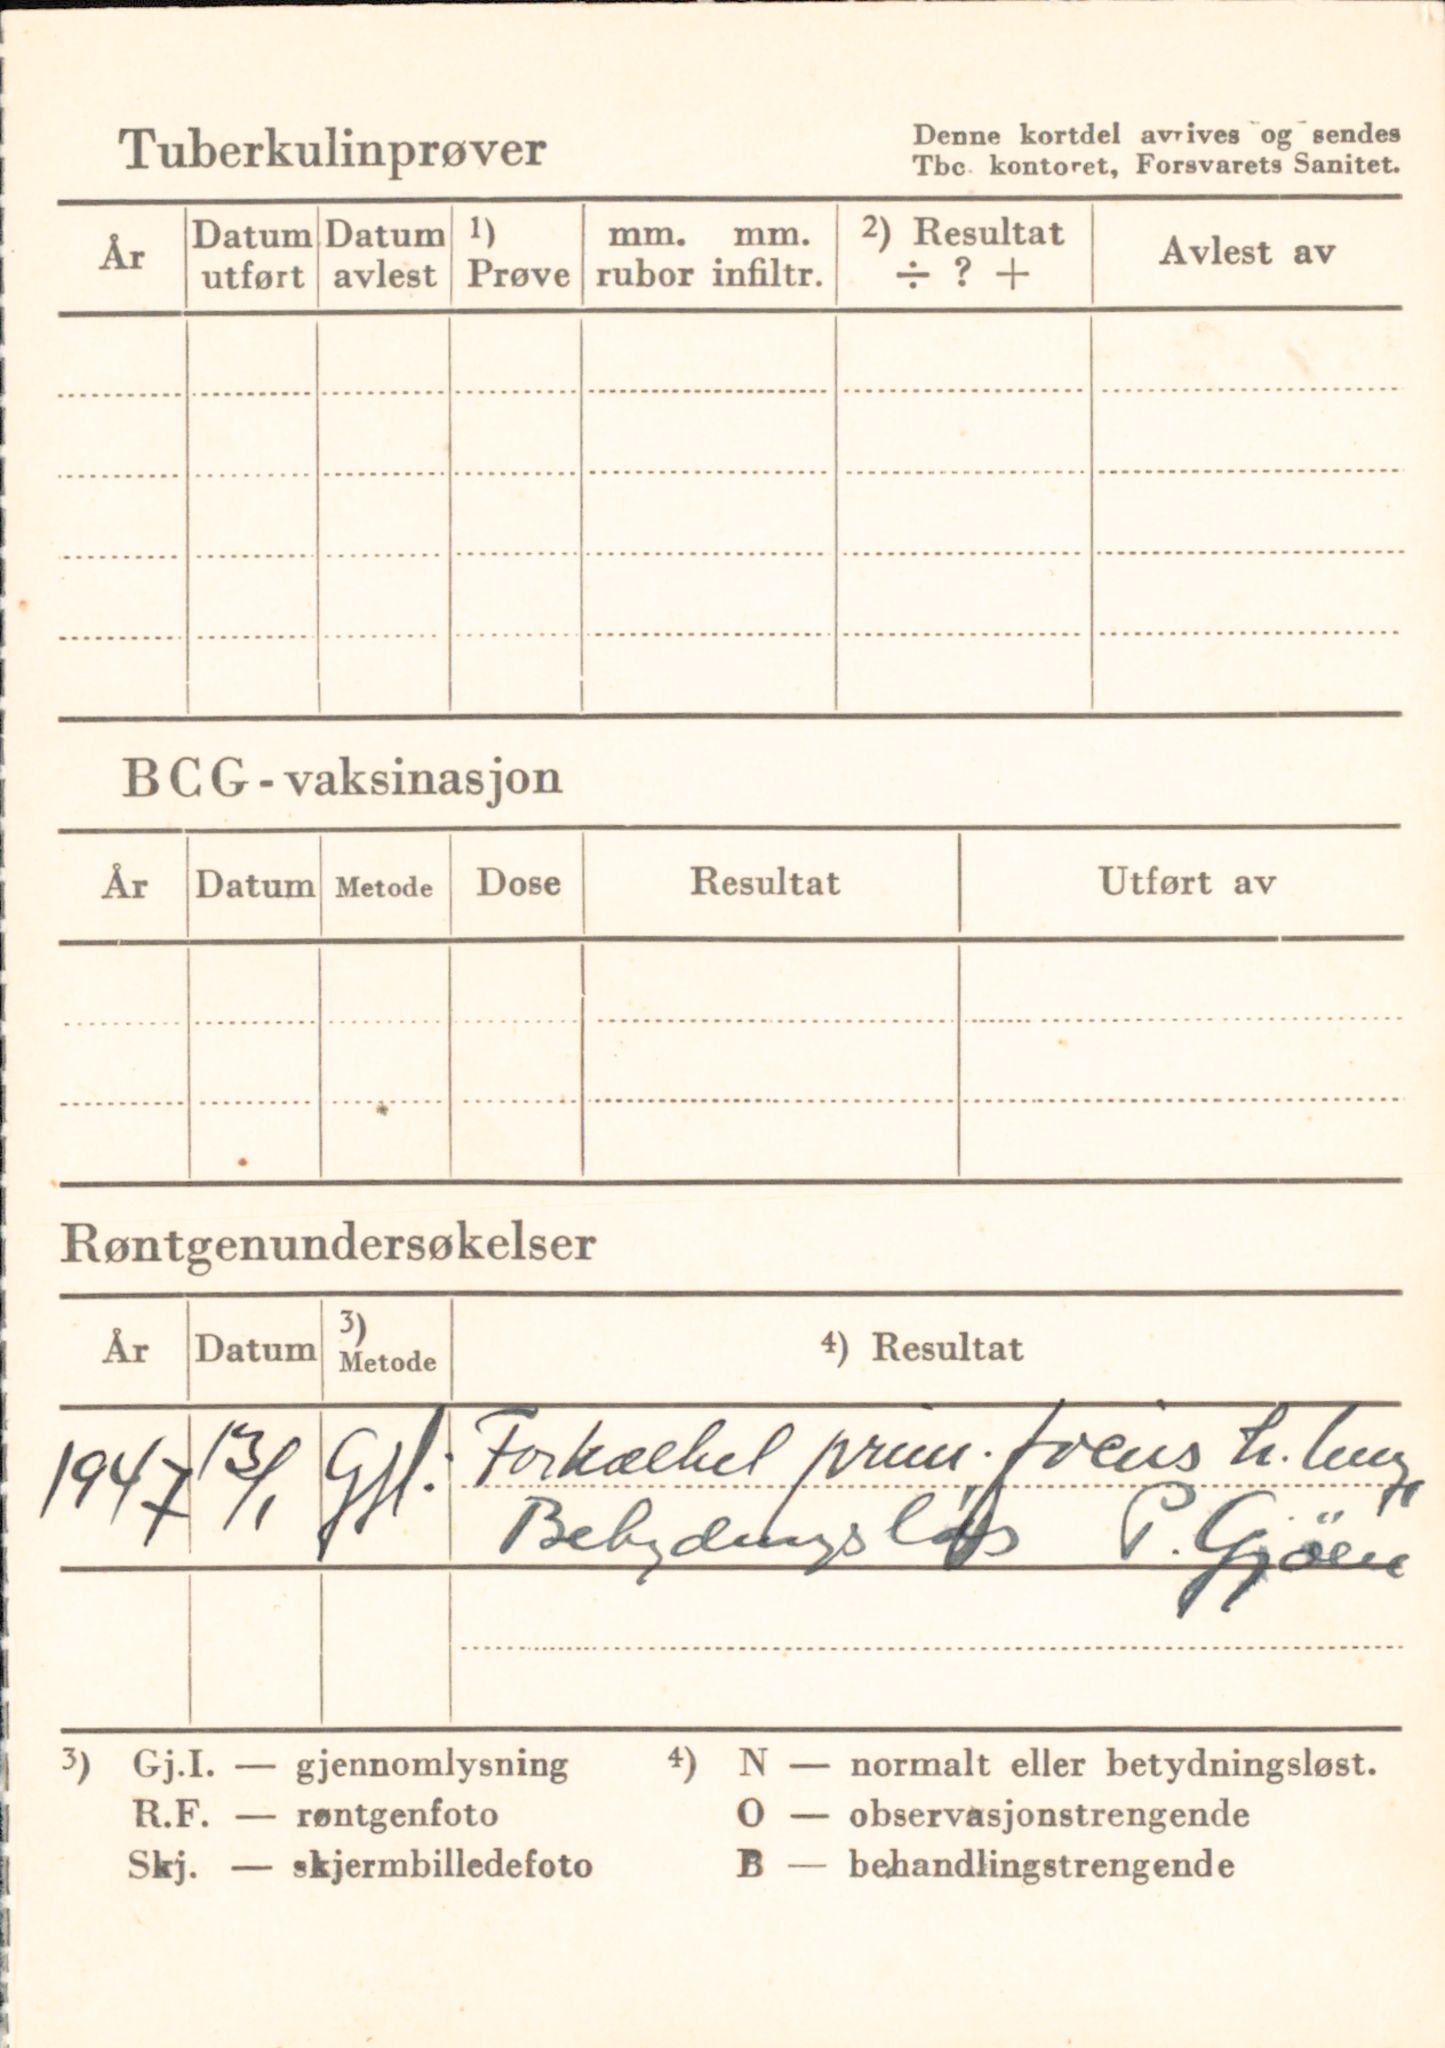 Tuberkulinprøver
Denne kortdel avrives og sendes
Tbc. kontoret, Forsvarets Sanitet.
År Datum utført Datum avlest 1) Prøve mm. rubor mm. infiltr. 2) Resultat ÷ ? + Avlest av
BCG-vaksinasjon
År Datum Metode Dose Resultat Utført av
Røntgenundersøkelser
År Datum 3) Metode 4) Resultat
1947 13/1 Gjl. Forkalket prim. focus h. lunge
Betydningsløs P. Gjöen
3) Gj.I. — gjennomlysning 4) N — normalt eller betydningsløst.
R.F. — røntgenfoto O — observasjonstrengende
Skj. — skjermbilledefoto B — behandlingstrengende